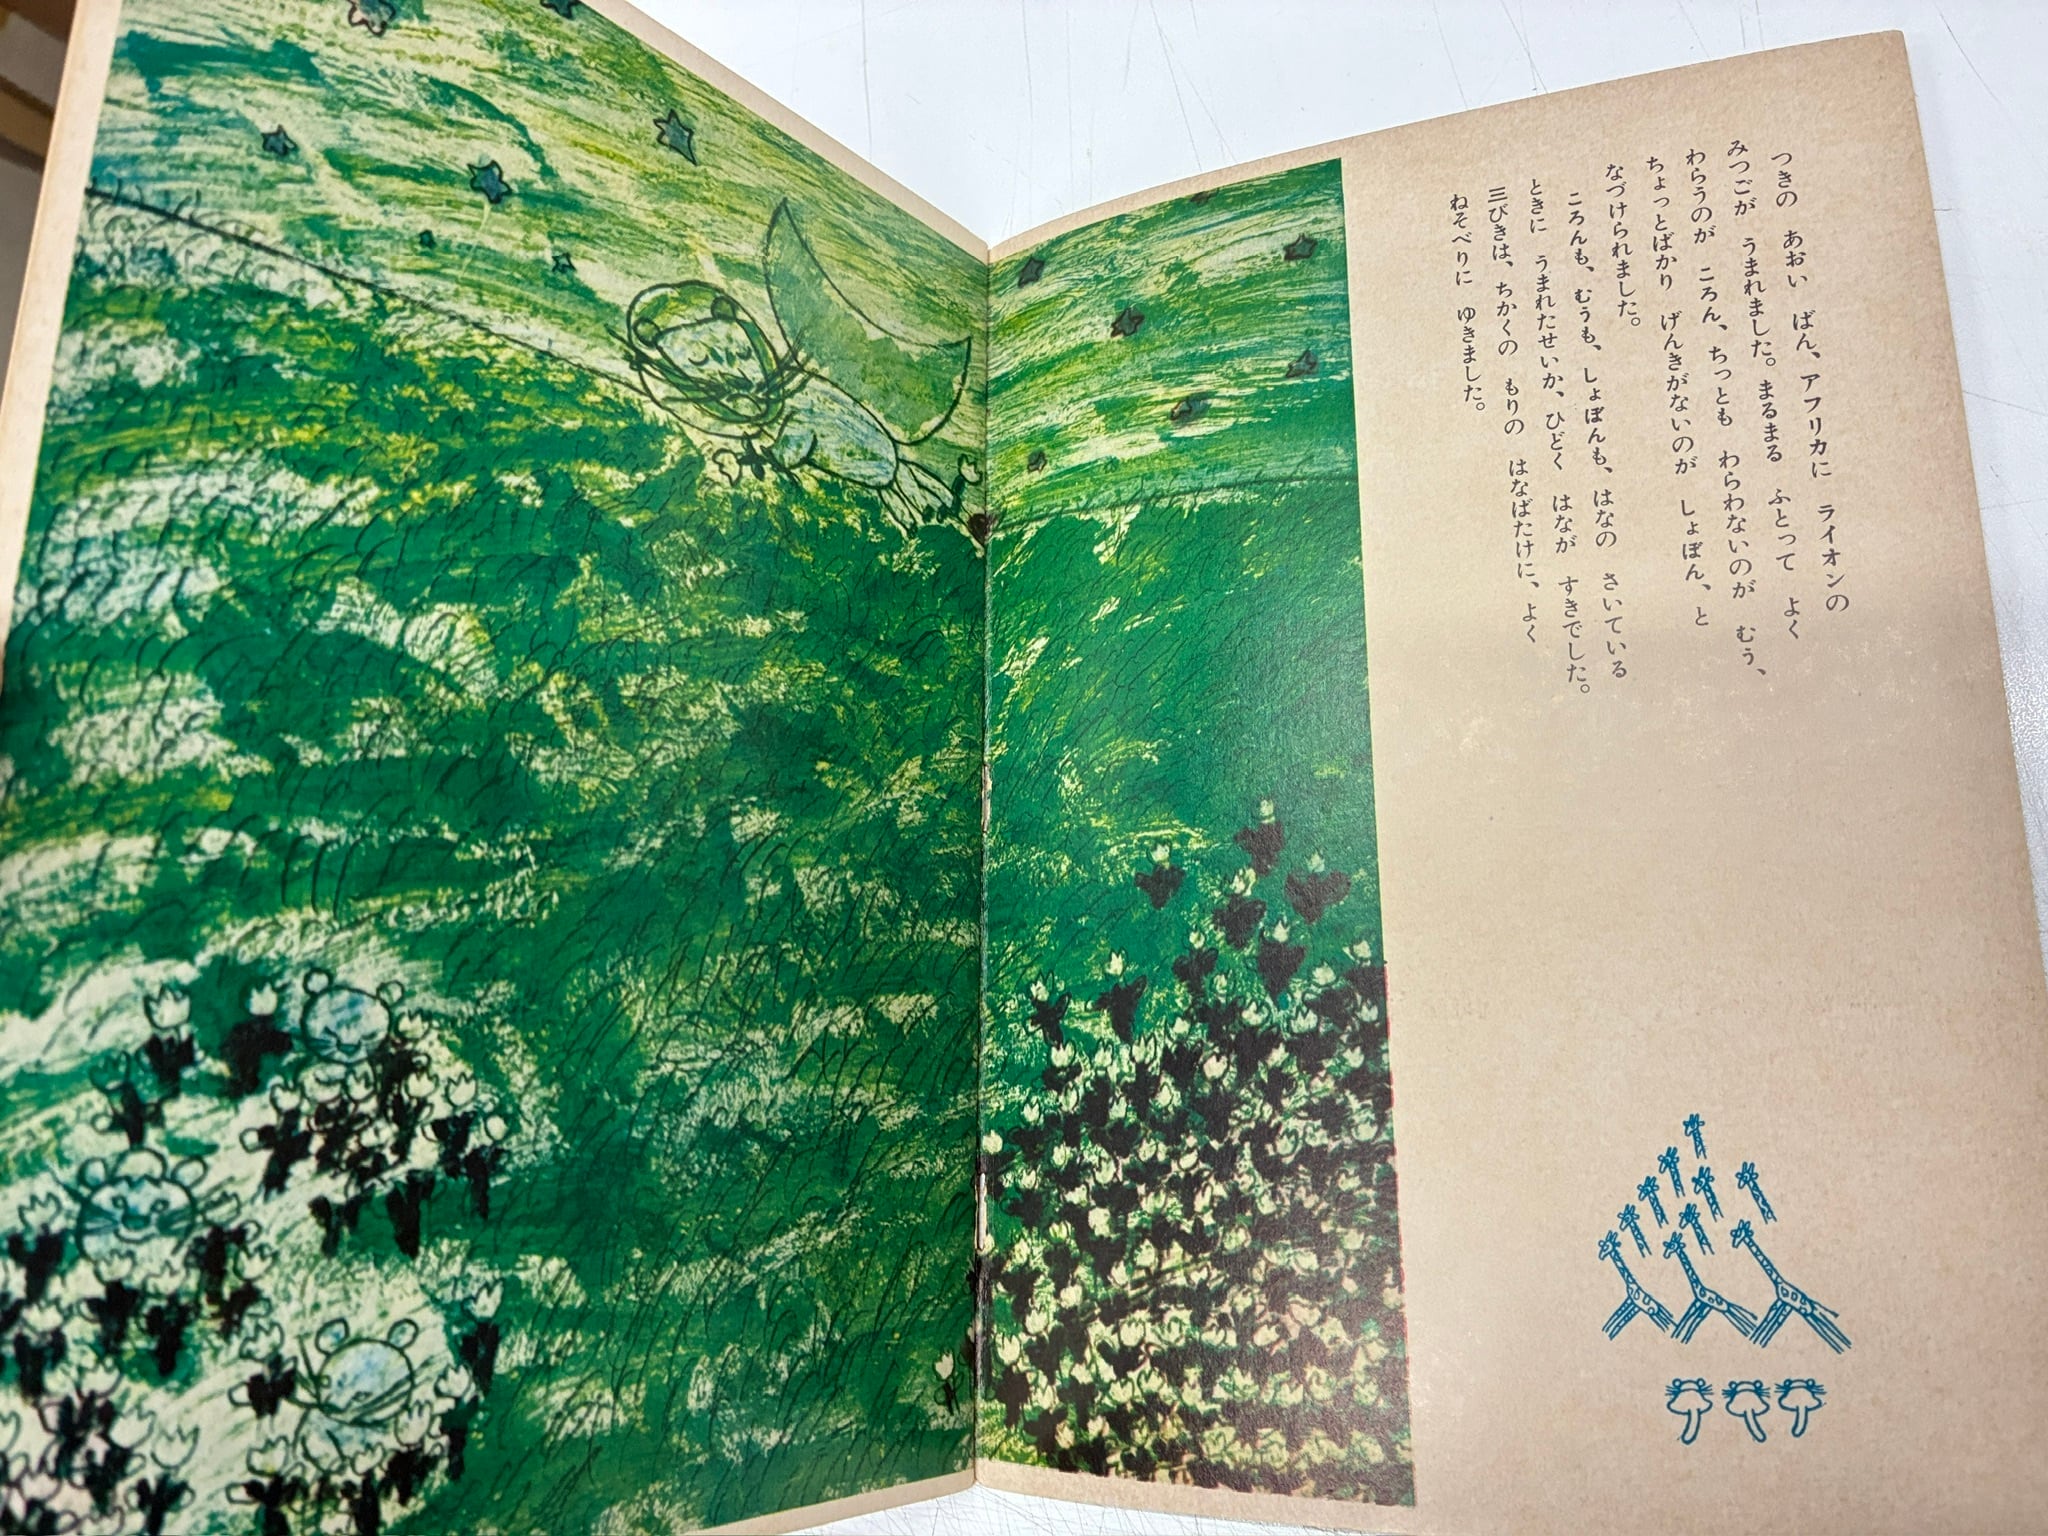 つきの　あおい　ばん、アフリカに　ライオンの
みつごが　うまれました。まるまる　ふとって　よく
わらうのが　ころん、ちっとも　わらわないのが　むう、
ちょっとばかり　げんきがないのが　しょぼん、と
なづけられました。
ころんも、むうも、しょぼんも、はなの　さいている
ときに　うまれたせいか、ひどく　はなが　すきでした。
三びきは、ちかくの　もりの　はなばたけに、よく
ねそべりに　ゆきました。